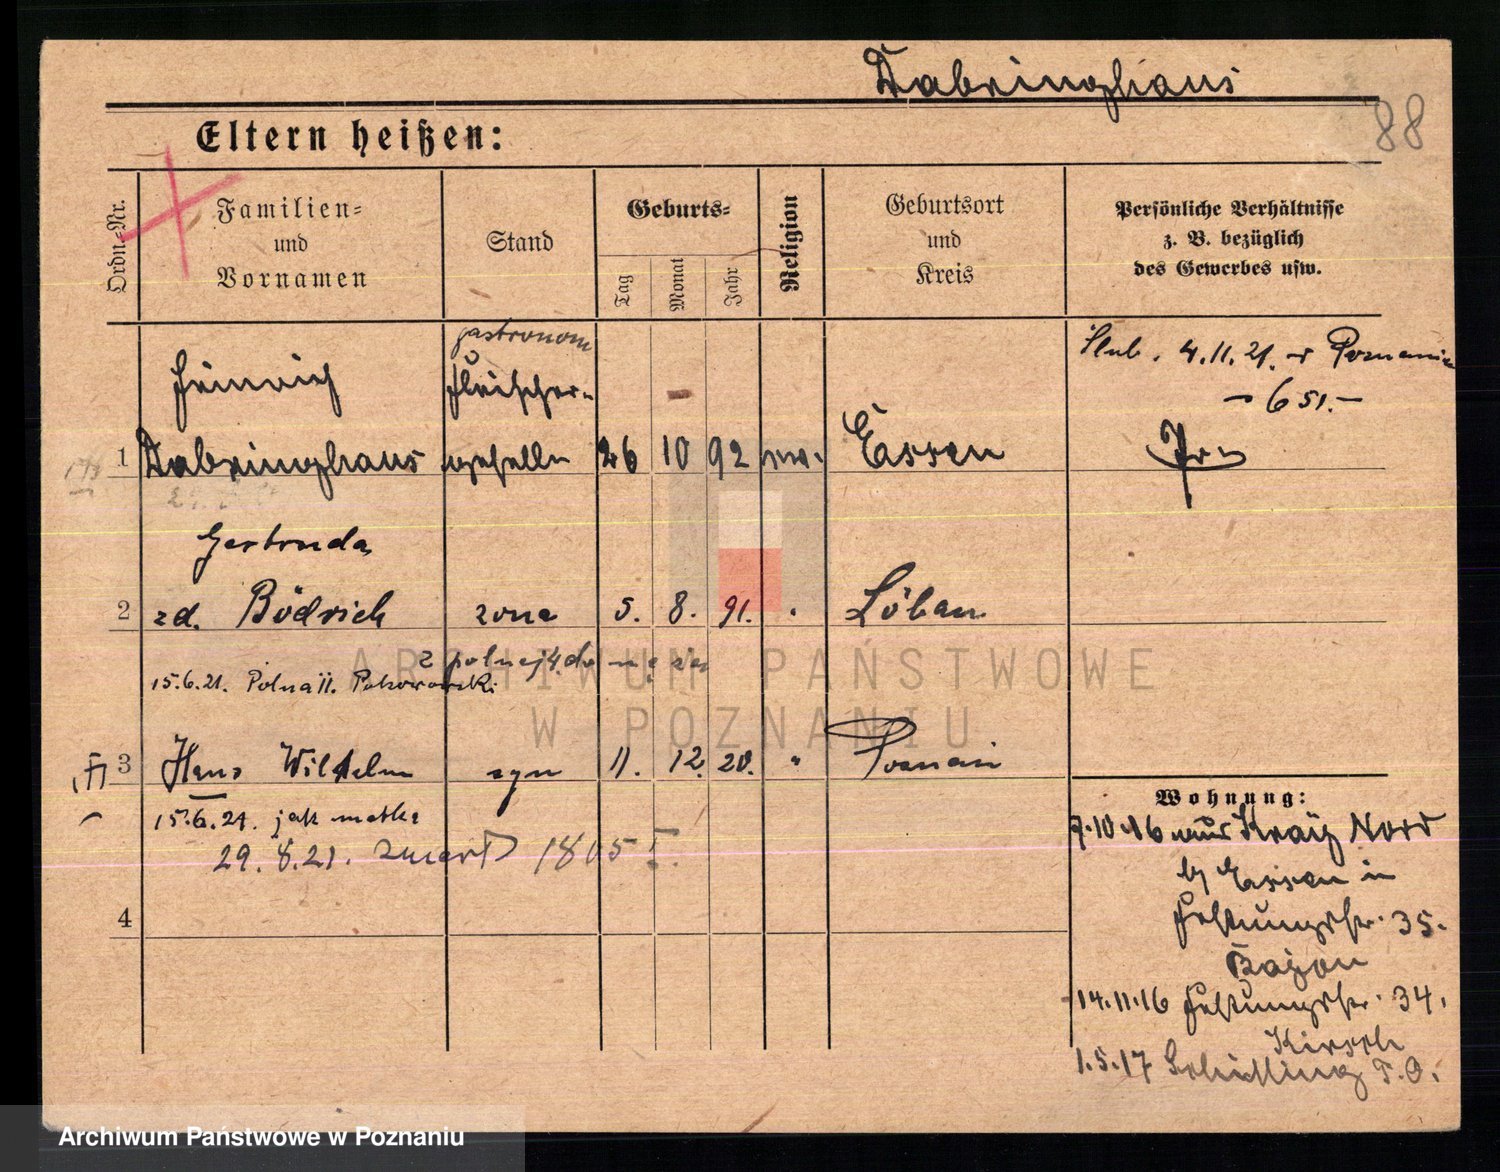 Dabringhaus
88
Eltern heißen:
Ordn.-Nr.
Familien-
und
Vornamen
Stand
Geburts-
Tag
Monat
Jahr
Religion
Geburtsort
und
Kreis
Persönliche Verhältnisse
z. B. bezüglich
des Gewerbes usw.
gastronom
Heinrich Fleischer-
1 Dabringhaus geselle 26 10 92 Essen
Ślub. 4.11.21. w Poznaniu
- 651.-
Gertruda
2 zd. Bödrich żona 5. 8. 91. Löban
15.6.21. Polna 11.
3 Hans Wilhelm syn 11. 12. 20. " Poznań
15.6.21. jak matka
29.8.21. zmarł 1805
4
Wohnung:
7.10.16 aus Kraij Nord
bj Essen in
Festungsstr. 35.
14.11.16 Festungsstr. 34.
Kirsch
1.5.17 Schilling T.O.
ARCHIWUM PAŃSTWOWE
W POZNANIU
Archiwum Państwowe w Poznaniu